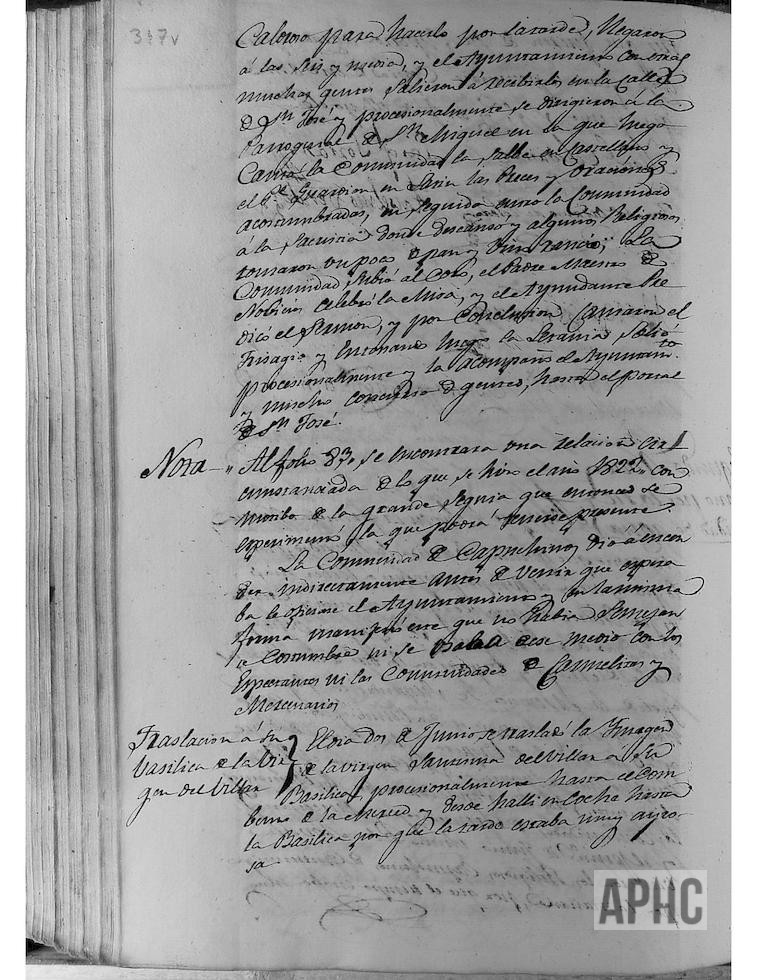 317v
Caloroso para hacerlo por la tarde, llegaron
á las seis y media, y el Ayuntamiento con otras
muchas gentes salieron á recibirlos en la Calle
de Sn. José y procesionalmente se dirigieron á la
Parroquial de Sn. Miguel en la que luego
Cantó la Comunidad la Salve en Castellano y
el Pe. Guardian en Latin las Preces y Oraciones
acostumbradas, en seguida entró la Comunidad
á la Sacristia donde descansó y algunos Religiosos
tomaron un poco de pan y vino rancio; La
Comunidad subió al Coro, el Padre Maestro de
Nobicios celebró la Misa, y el Ayudante Pre
dicó el Sermon, y por Conclusion Cantaron el
Trisagio y Entonando luego la Letania salió
procesionalmente y la acompañó el Ayuntamto.
y mucho concurso de gentes, hasta el portal
de Sn. José.
Nota " Al folio 83, se encontrara una relacion cir
cunstanciada de lo que se hizo el año 1822, con
motibo de la grande sequia que entonces se
esperimentó, la que podrá tenerse presente
La Comunidad de Capuchinos dió á enten
der indirectamente antes de venir que espera
ba le oficiase el Ayuntamiento y en la misma
forma manifesté que no habia semejan
te Costumbre ni se usaba de ese medio con los
Espectantes ni las Comunidades de Carmelitas y
Mercenarios
Traslacion á su
Vasilica de la Vir
gen del Villar
El dia dos de Junio se trasladó la Imagen
de la Virgen Santisima del Villar á su
Basilica, procesionalmente hasta el Com
bento de la Merced y desde halli en Coche hasta
la Basilica por que la tarde estaba muy ayro
sa
APHC